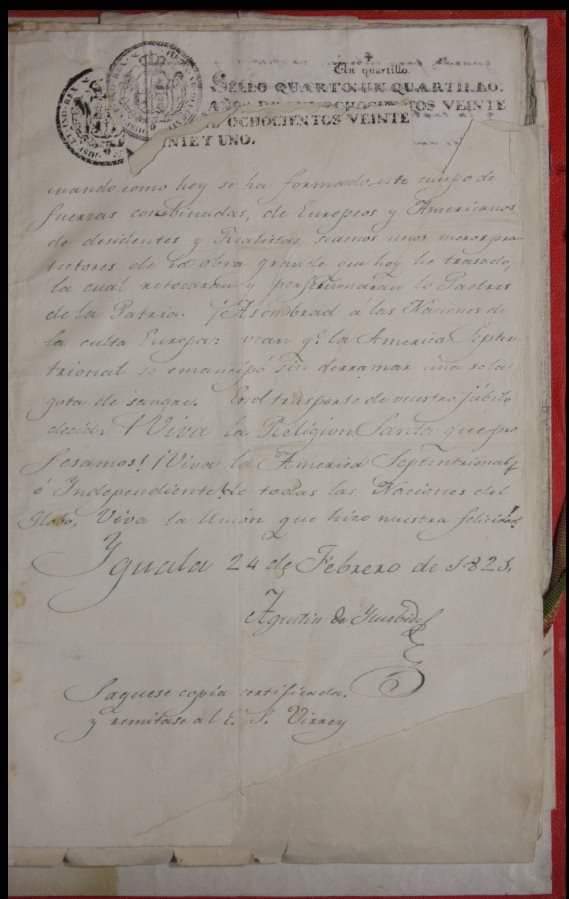 Un quartillo.
SELLO QUARTO UN QUARTILLO.
OCHOCIENTOS VEINTE
OCHOCIENTOS VEINTE
INTE Y UNO.
quando como hoy se ha formado este cuerpo de
fuerzas combinadas, de Europeos y Americanos
de desidentes y Realistas, seamos unos meros pro
tectores de la obra grande que hoy he trasado,
la cual retocaran y perfeccionaran lo Padres
de la Patria. ¡Asombrad á las Naciones de
la culta Europa: vean qe. la America Septen
trional se emancipó sin derramar una sola
gota de sangre. En el trasporte de vuestro júbilo
decid: ¡Viva la Religion Santa que pro
fesamos! ¡Viva la America Septentrional,
é Independiente de todas las Naciones del
Globo, Viva la Union que hizo nuestra felicidad
Yguala 24 de Febrero de 1821.
Agustin de Yturbide
Saquese copia certificada.
y remitase al E. S. Virrey